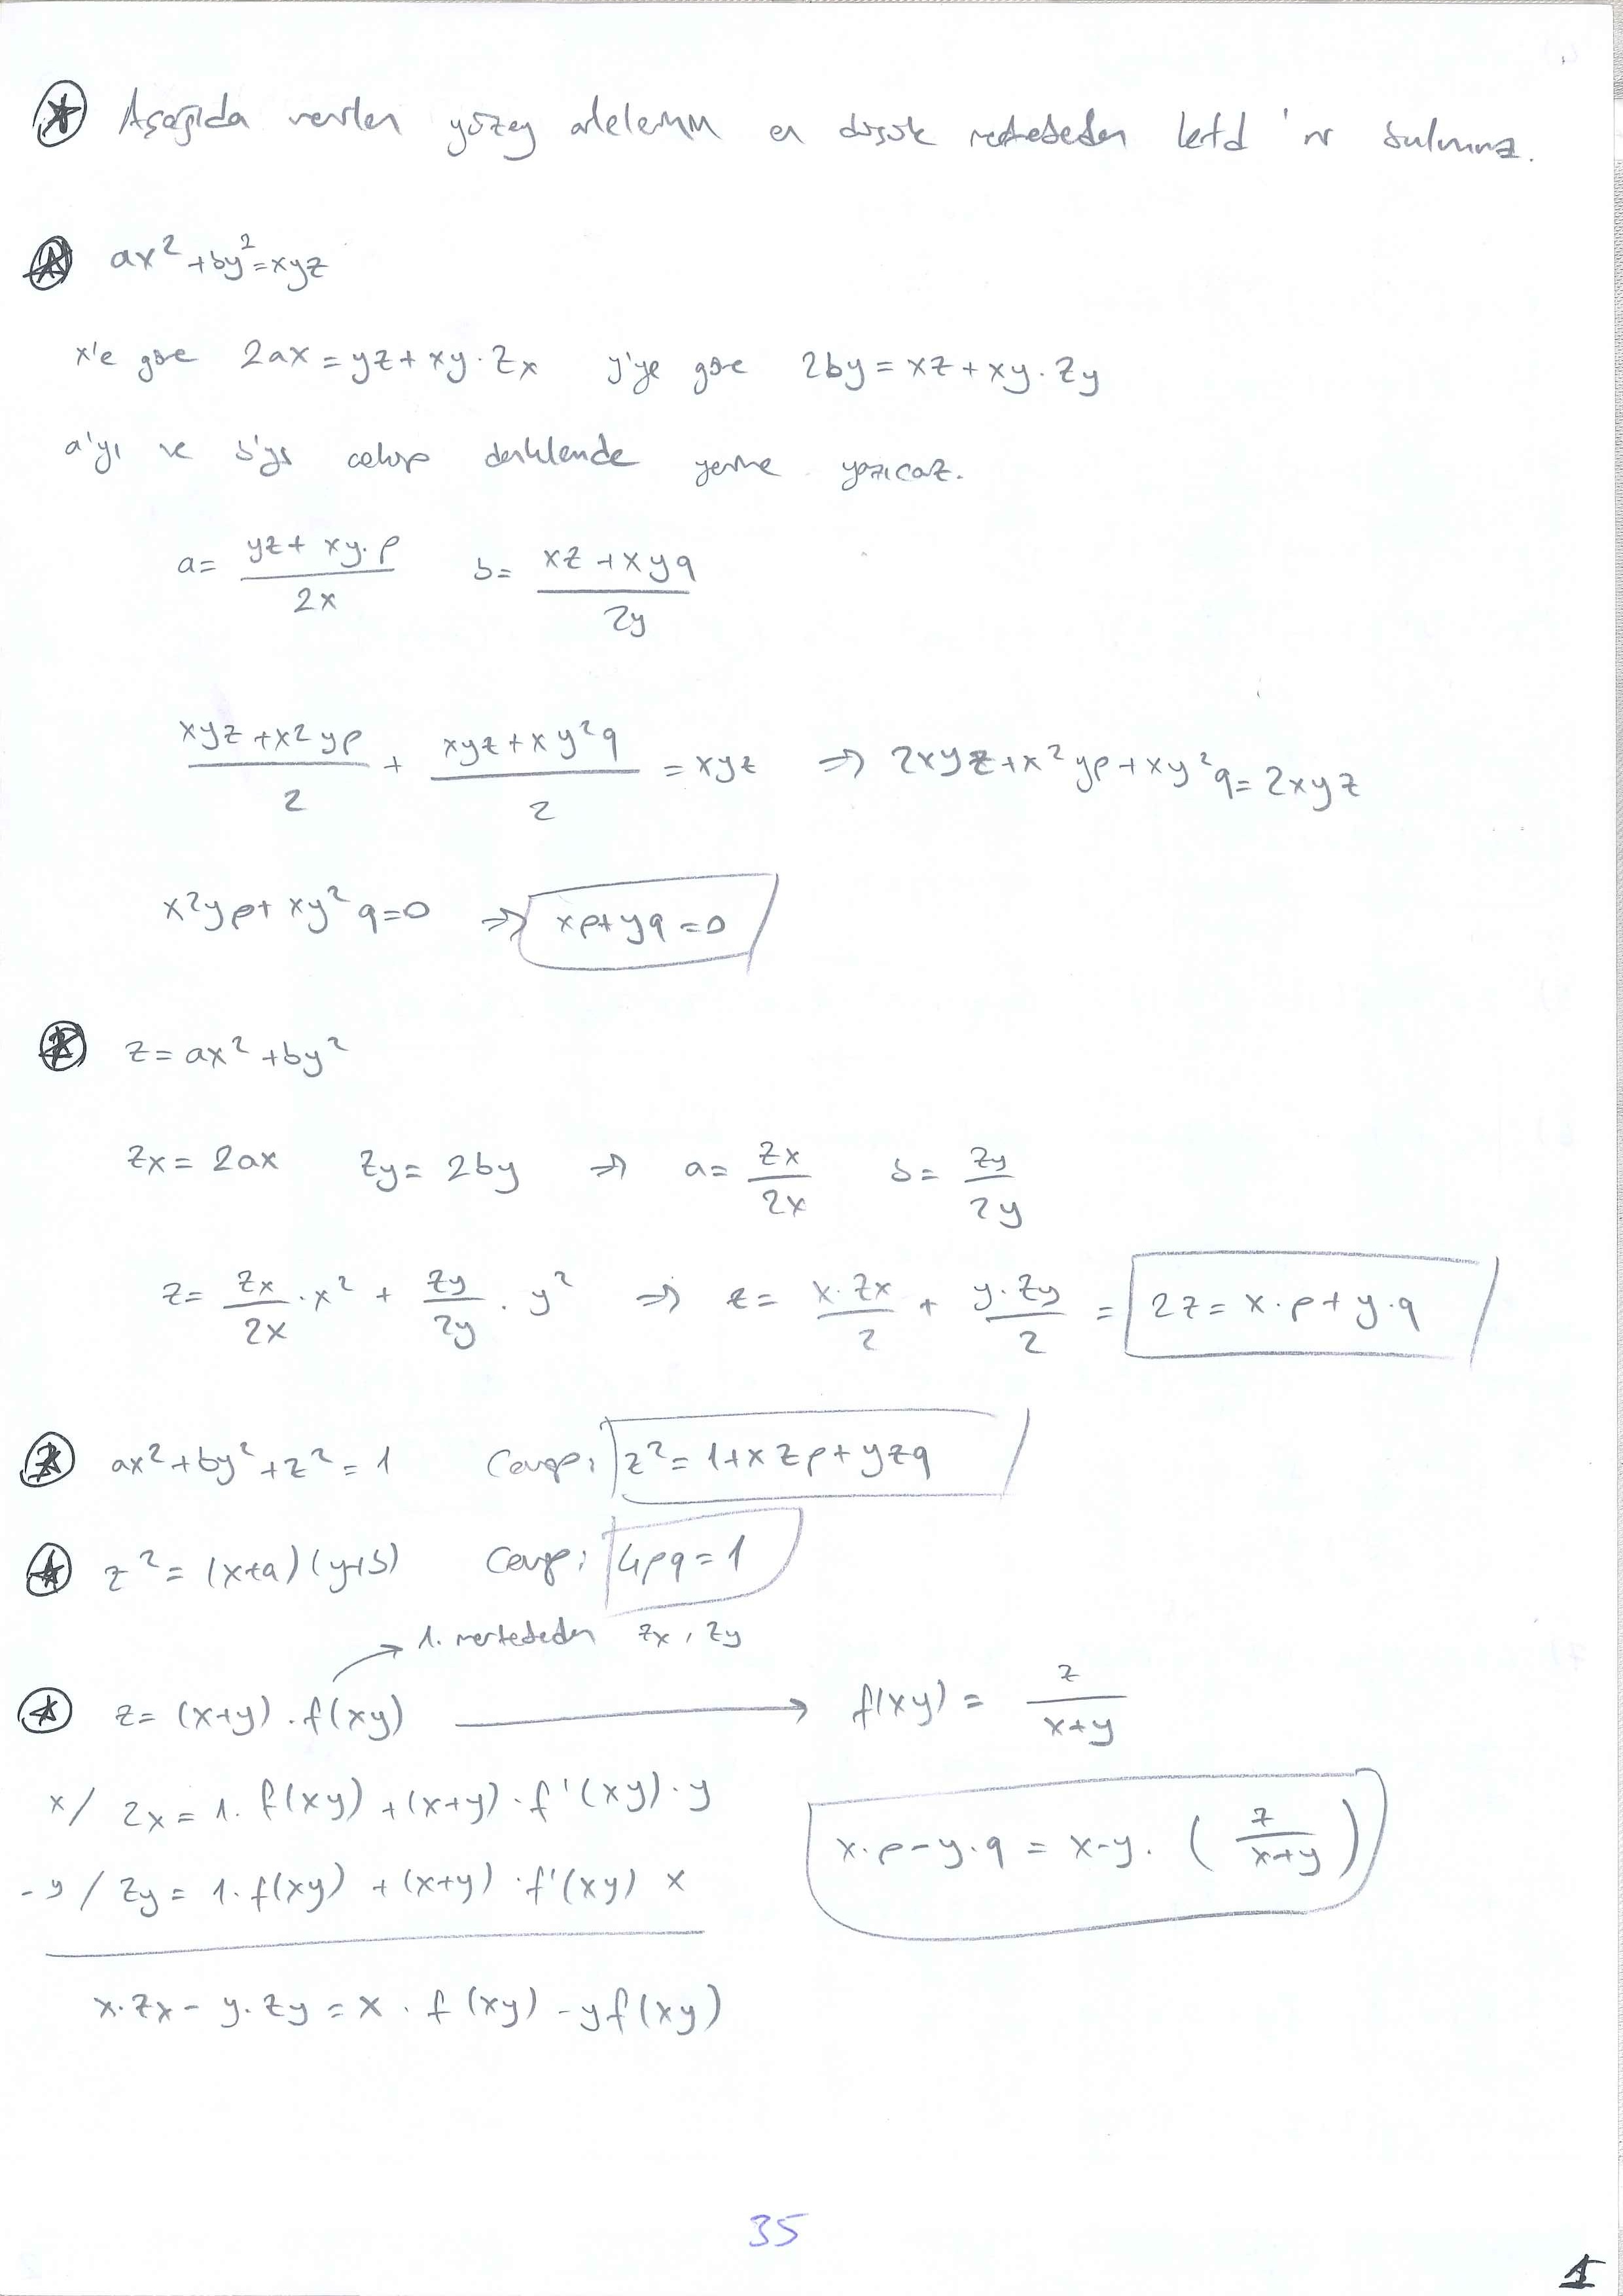 Aşağıda verilen yüzey ailelerinin en düşük mertebeden kftd 'ni bulunuz.
ax² + by² = xyz
x'e göre 2ax = yz + xy · zx y'ye göre 2by = xz + xy · zy
a'yı ve b'yi çekip denklemde yerine yazıcaz.
a = (yz + xy·p) / 2x b = (xz + xyq) / 2y
(xyz + x²yp) / 2 + (xyz + xy²q) / 2 = xyz ⇒ 2xyz + x²yp + xy²q = 2xyz
x²yp + xy²q = 0 ⇒ xp + yq = 0
z = ax² + by²
zx = 2ax zy = 2by ⇒ a = zx / 2x b = zy / 2y
z = zx / 2x · x² + zy / 2y · y² ⇒ z = x·zx / 2 + y·zy / 2 = 2z = x·p + y·q
ax² + by² + z² = 1 Cevap: z² = 1 + xzp + yzq
z² = (x+a)(y+b) Cevap: 4pq = 1
1. mertebeden zx, zy
z = (x+y) · f(xy) → f(xy) = z / (x+y)
x/ zx = 1. f(xy) + (x+y) · f'(xy) · y
x·p - y·q = x-y. (z / (x+y))
-y/ zy = 1. f(xy) + (x+y) · f'(xy) x
x·zx - y·zy = x · f(xy) - yf(xy)
35
1